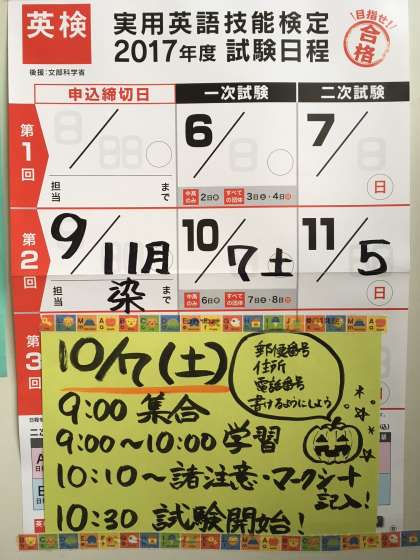 英検
実用英語技能検定
2017年度 試験日程
後援:文部科学省
目指せ!
合格
申込締切日 一次試験 二次試験
第1回
6/
7/
担当 まで
中高のみ 2日金 すべての団体 3日土・4日日
日
第2回
9/11月
10/7土
11/5
担当 染 まで
中高のみ 6日金 すべての団体 7日土・8日日
日
第3
10/7(土)
郵便番号
住所
電話番号
書けるようにしよう
9:00 集合
9:00~10:00 学習
10:10~諸注意・マークシート
記入!
10:30 試験開始!